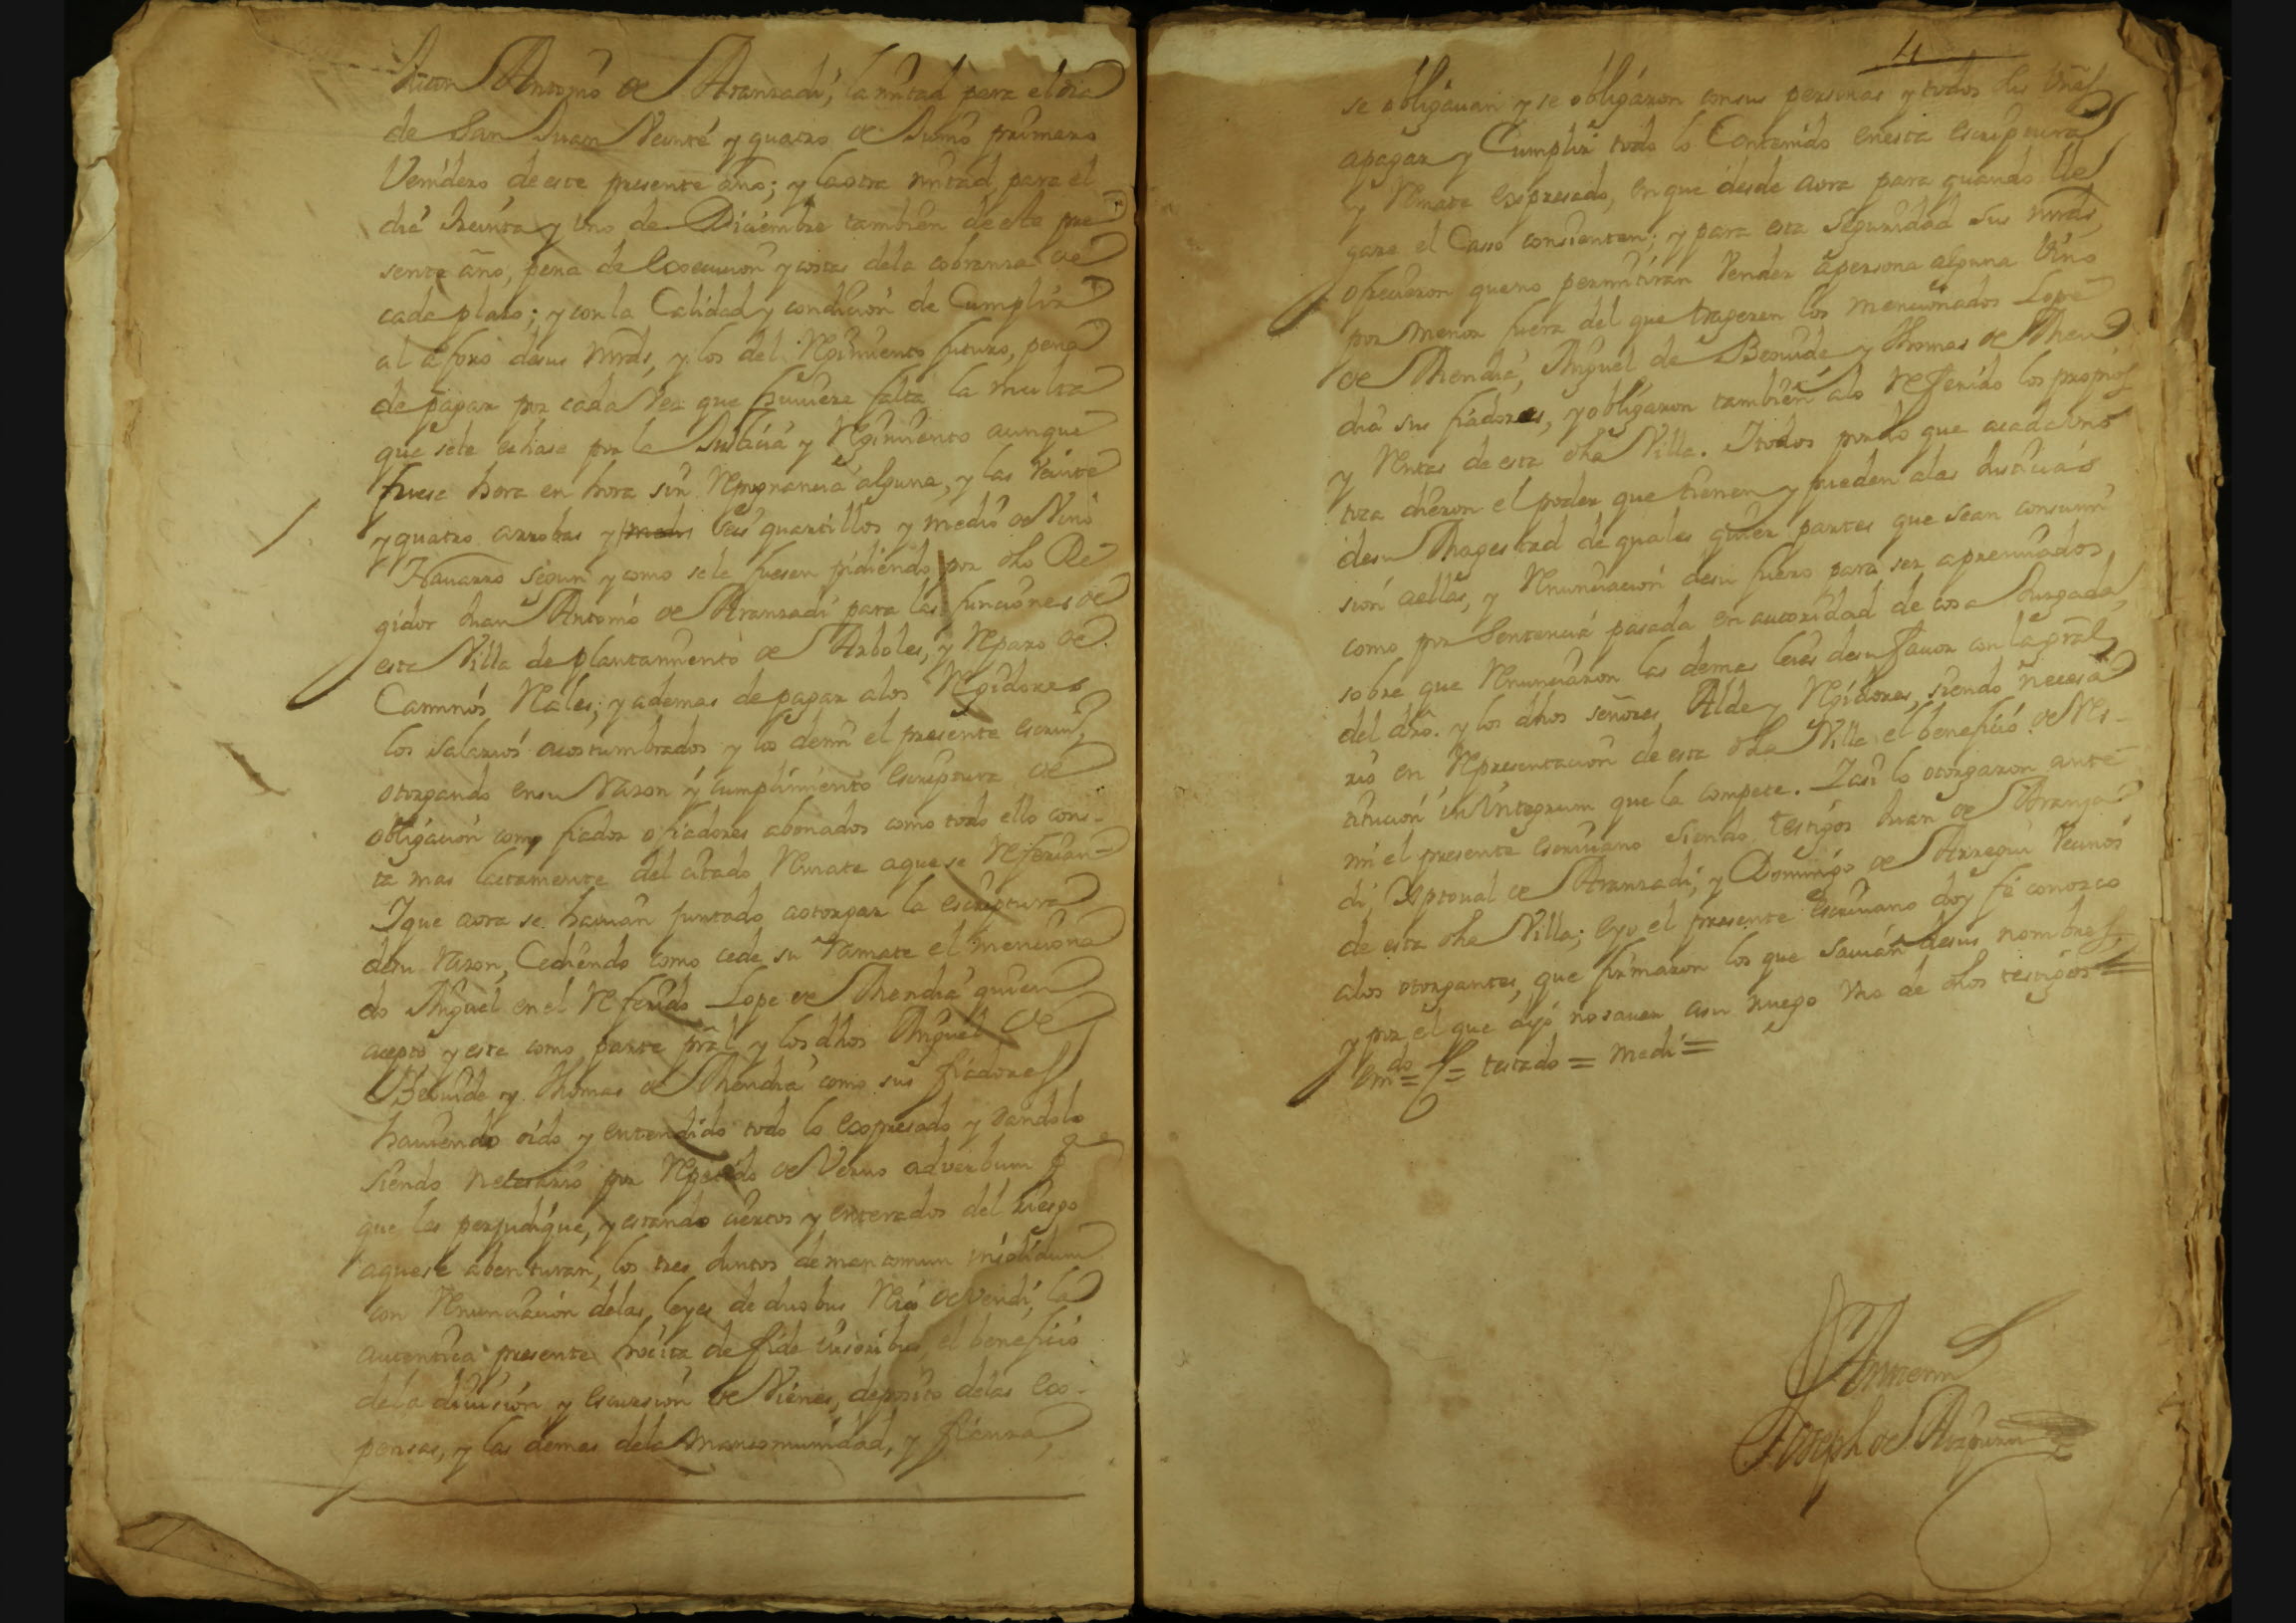 Juan Antonio de Aranzadi, la mitad para el dia
de San Juan Veinte y quatro de Junio primero
Venidero de este presente año; y la otra mitad para el
dia treinta y uno de Diciembre tambien de este pre
sente año, pena de execucion y costas dela cobranza de
cada plaso; y con la Calidad y condicion de Cumplir
al aforo desus mrds, y los del Regimiento futuro, pena
de pagar por cada Vez que huuiere falta la multa
que sele echase por la Justicia y Regimiento aunque
fuese hora en hora sin Repugnancia alguna, y las Veinte
y quatro arrobas y medi seis quartillos y medio de Vino
Nauarro segun y como sele fuesen pidiendo por dho Re
gidor Juan Antonio de Aranzadi para las funciones de
esta Villa de plantamiento de Arboles, y Reparo de
Caminos Rales; y ademas de pagar alos Regidores
los salarios acostumbrados y los demi el presente escriu.
otorgando ensu Razon y cumplimiento escriptura de
obligacion como fiador o fiadores abonados como todo ello cons-
ta mas lactamente del citado Remate aquese Referian
I que aora se hauian juntado aotorgar la escriptura
desu razon, Cediendo como cede su Ramate el menciona
do Miguel en el Referido Lope de Mendia quien
acepto y este como parte pral y los dhos Miguel de
Beouide y Thomas de Mendia como sus fiadores
hauiendo oido y entendido todo lo expresado y dandolo
siendo necesario por Repetido de Veruo adverbum
que les perjudique, y estando ciertos y enterados del riesgo
aquese abenturan, los tres Juntos demancomun insolidum
con Renunciacion delas leyes de duobus Reis devendi, la
autentica presente hocita de fide iusoribus, el beneficio
dela diuision y escursion de Vienes, deposito delas ex-
pensas, y las demas dela mancomunidad, y fianza,
4
se obligauan y se obligaron consus personas y todos sus Vnes
apagar y Cumplir todo lo Contenido enesta escriptura
y Remate expresado, en que desde aora para quando lle
gare el Casso consienten; y para esta Seguridad sus mrds,
ofrecieron que no permitiran Vender apersona alguna Vino
por menor fuera del que trageren los mencionados Lope
de Mendia, Miguel de Beouide y Thomas de Men
dia sus fiadores, y obligaron tambien alo Referido los propios
y Rentas de esta dha Villa. I todos por lo que acadauno
toca dieron el poder que tienen y pueden alas Justicias
desu Magestad de quales quier partes que sean consumi
sion aellas, y Renunciacion desu fuero para ser apremiados,
como por Sentencia pasada en autoridad de cosa Juzgada,
sobre que Renunciaron las demas leies desu fauor con la gral
del dro. y los dhos señores Alde y Regidores, siendo necesa
rio en Representacion de esta dha Villa el beneficio de Res-
titucion in integrum que la compete. I asi lo otorgaron ante
mi el presente escriuano siendo testigos Juan de Aranza
di, Xptoual de Aranzadi, y Domingo de Arregui Vecinos
de esta dha Villa; e yo el presente escriuano doy fe conozco
alos otorgantes, que firmaron los que sauian desus nombres
y por el que dijo no sauer asu ruego vno de dhos testigos =
emdo = = testado = medi =
Ante mi
Joseph de